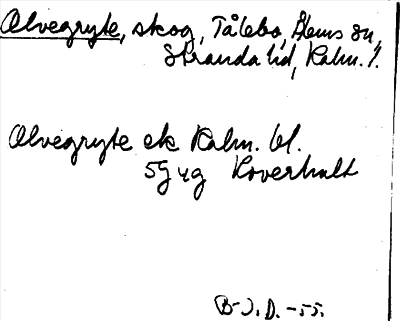 Alvegryte, skog, Tålebo, Ålems sn,
Stranda hd, Kalm. l.
Alvegryte ek Kalm. bl.
5g 4g Koverhult
B-J. D. -55.